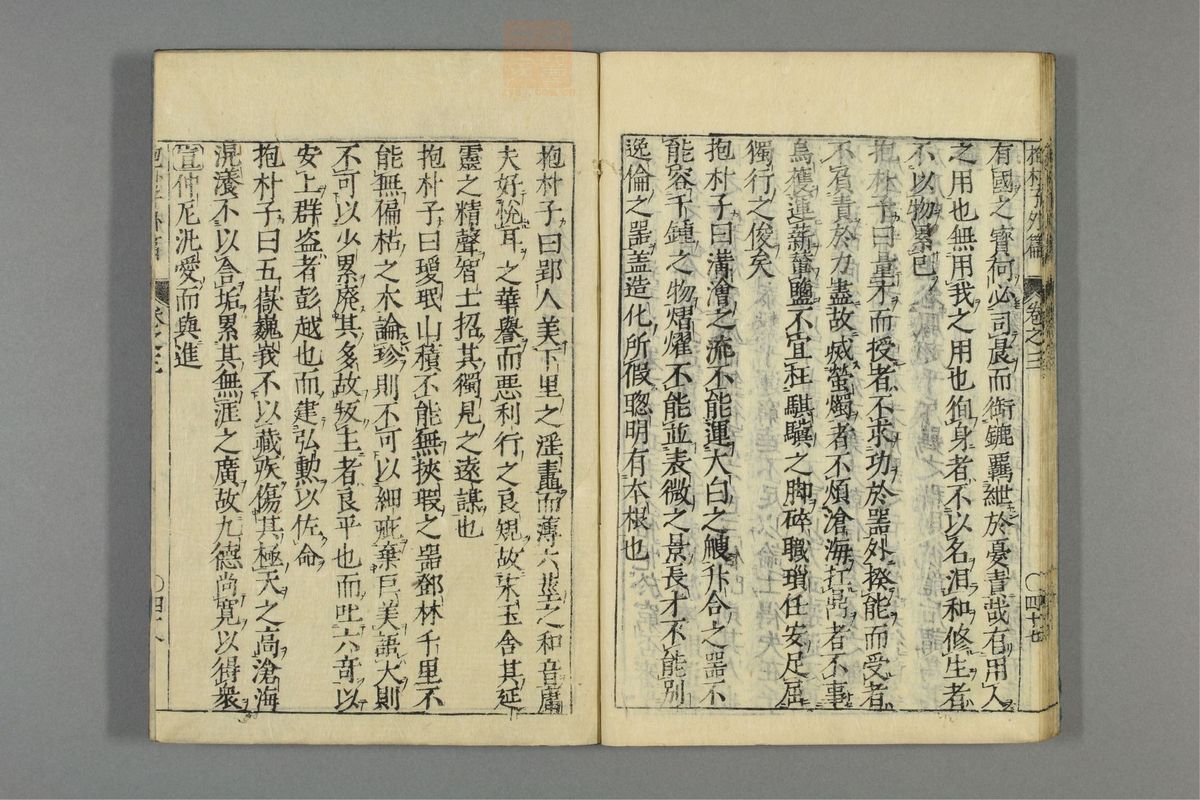 抱朴子外篇 卷之三 〇四十七
有國之寳何必司晨而銜鑣羈紲於憂責哉有用人
之用也無用我之用也徇身者不以名汨和修生者
不以物累已
抱朴子曰量才而授者不求功於器外揆能而受者
不負責於力盡故烕螢燭者不煩滄海扛鼎者不事
烏獲運薪輦鹽不宜枉騏驥之脚碎職瑣任安足屈
獨行之俊矣
抱朴子曰溝澮之流不能運大白之艘升合之器不
能容千鍾之物熠燿不能並表微之景長才不能別
逸倫之器盖造化所假聦明有本根也
抱朴子曰郢人美下里之淫𨻳而薄六莖之和音庸
夫好恱耳之華譽而惡利行之良規故宋玉舎其延
靈之精聲智士招其獨見之遠謀也
抱朴子曰瓊珉山積不能無挾瑕之器鄧林千里不
能無偏枯之木論珍則不可以細疵棄巨美語大則
不可以少累廃其多故叛主者良平也而吐六竒以
安上群盗者彭越也而建弘勲以佐命
抱朴子曰五嶽巍峩不以藏疾傷其極天之高滄海
滉瀁不以含垢累其無涯之廣故九德尚寛以得衆
宣仲尼汎愛而與進
卷之三 〇四十八